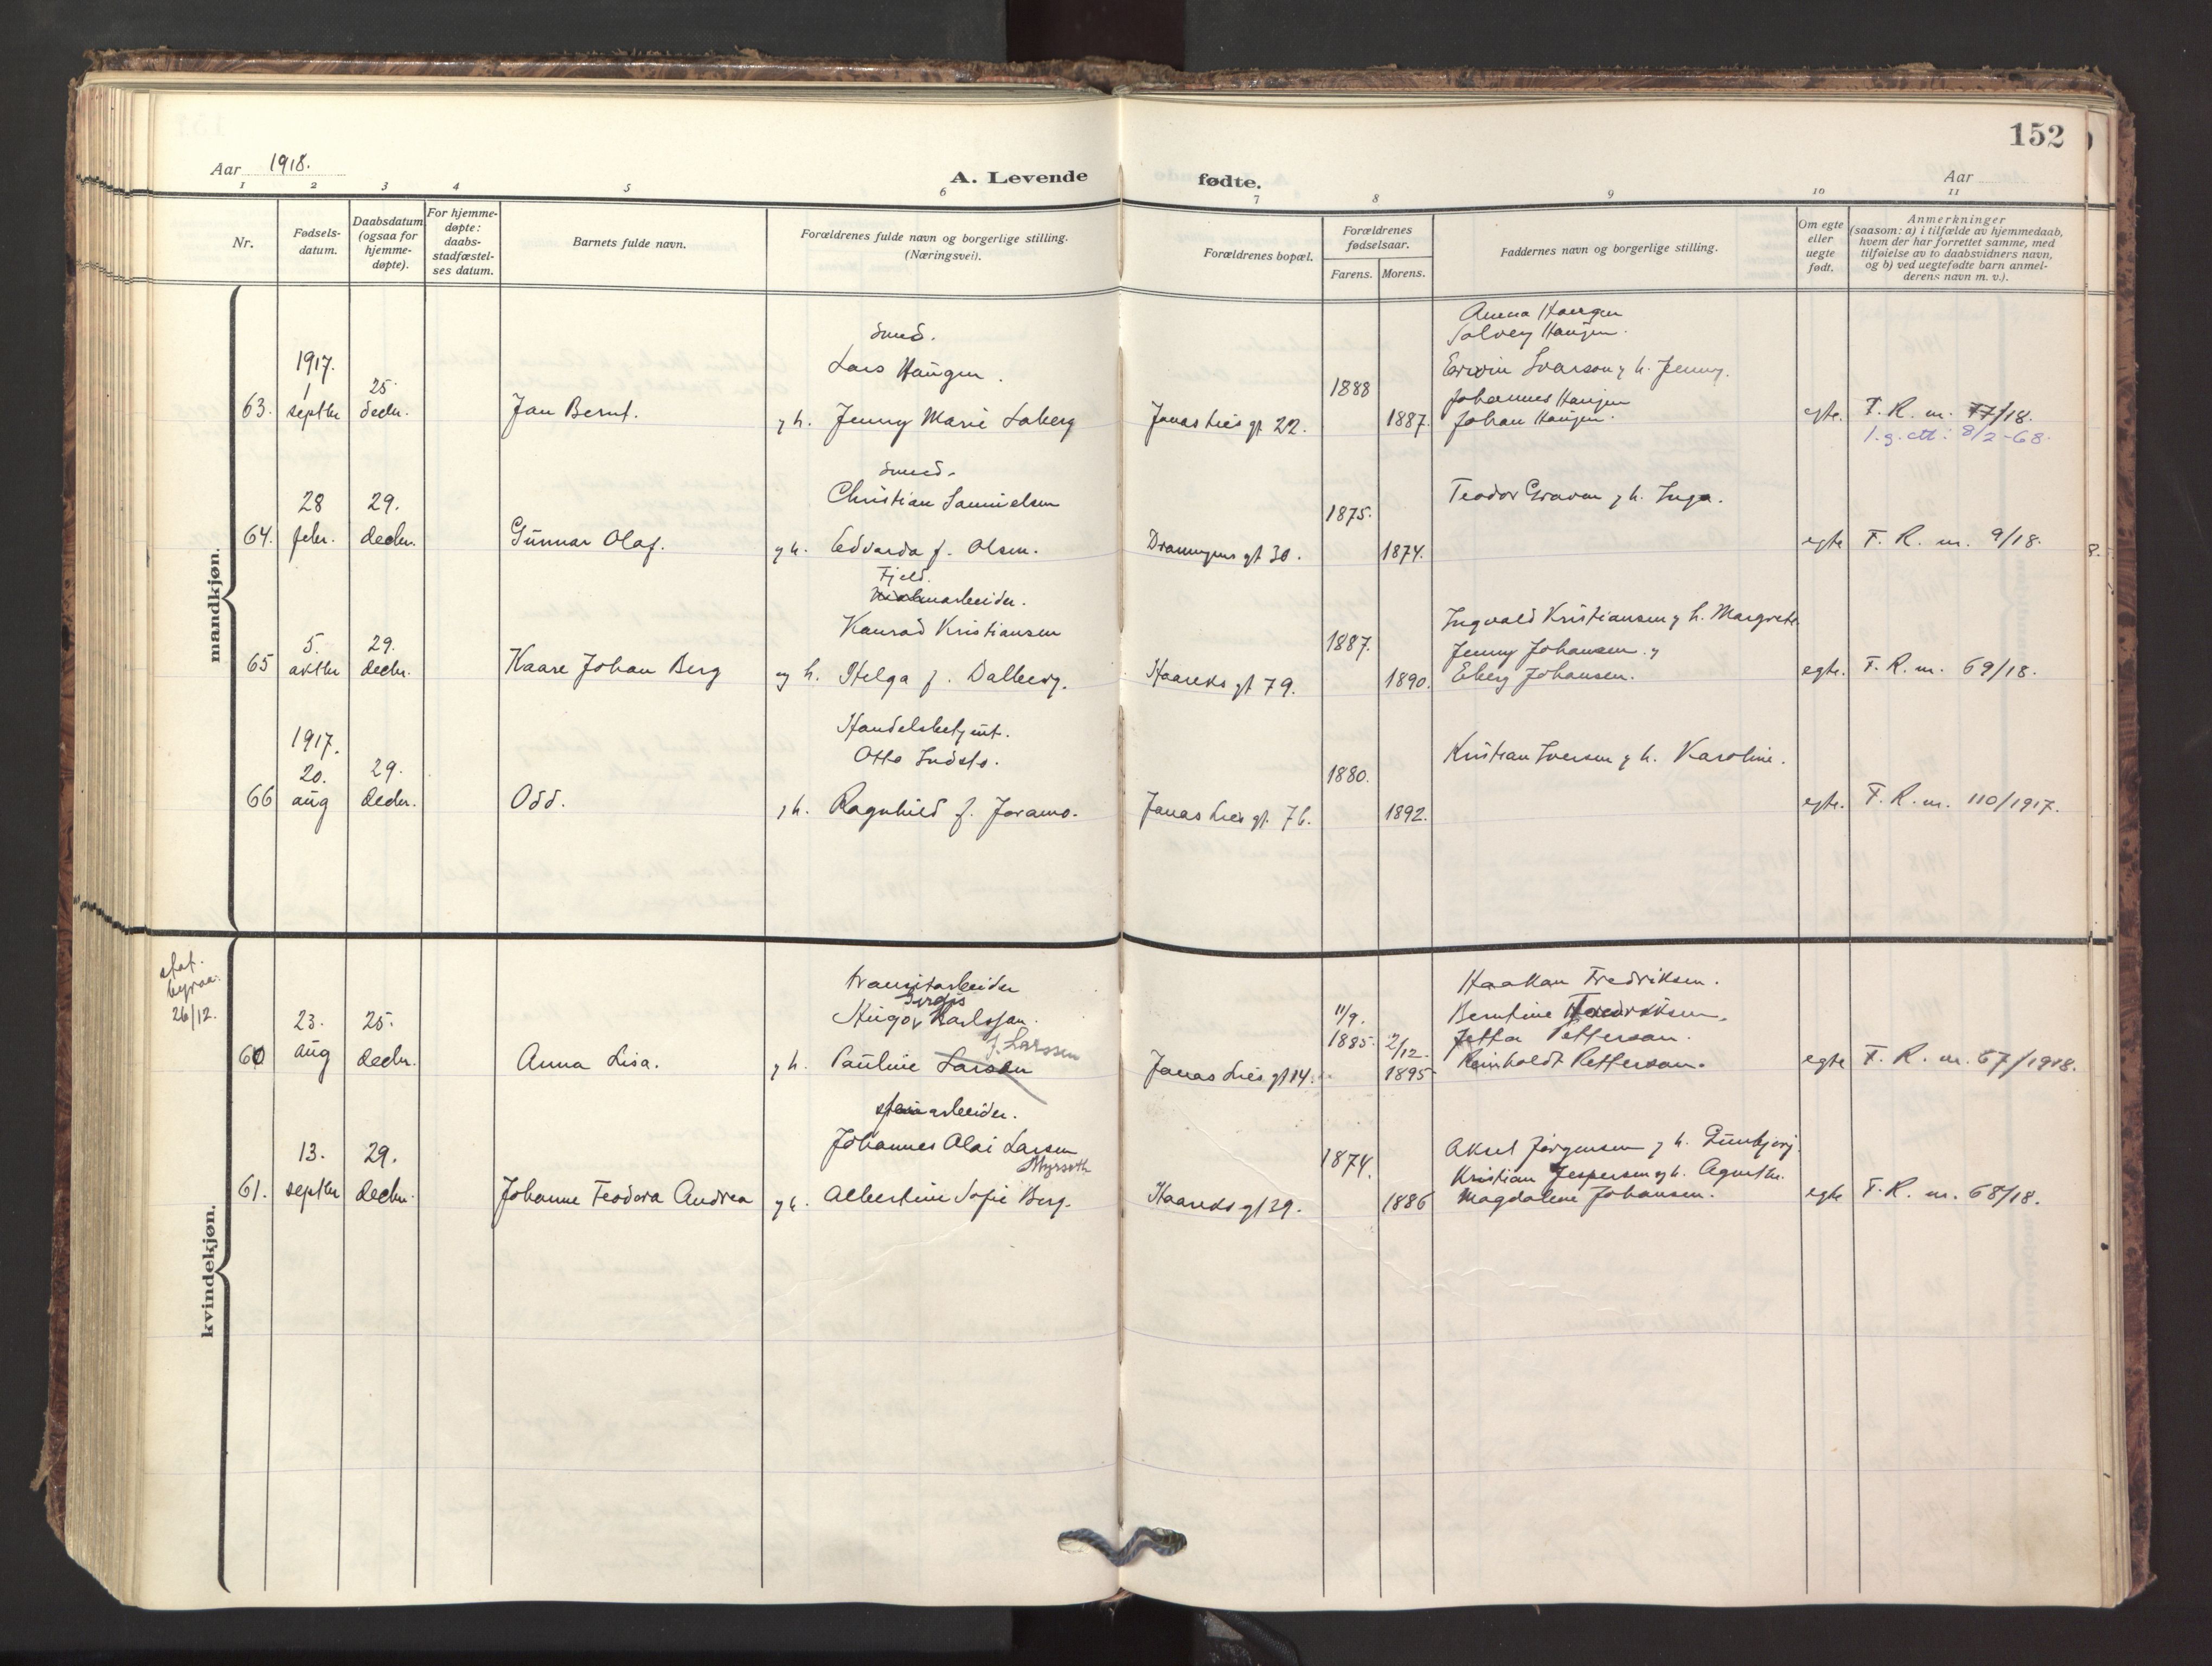 152
Aar 1918.
A. Levende fødte.
Aar
1 2 3 4 5 6 7 8 9 10 11
Nr.
Fødsels-
datum.
Daabsdatum
(ogsaa for
hjemme-
døpte).
For hjemme-
døpte:
daabs-
stadfæstel-
ses datum.
Barnets fulde navn.
Forældrenes fulde navn og borgerlige stilling.
(Næringsvei).
Forældrenes bopæl.
Forældrenes
fødselsaar.
Farens. Morens.
Faddernes navn og borgerlige stilling.
Om egte
eller
uegte
født.
Anmerkninger
(saasom: a) i tilfælde av hjemmedaab,
hvem der har forrettet samme, med
tilføielse av to daabsvidners navn,
og b) ved uegtefødte barn anmel-
derens navn m. v.).
mandkjøn.
63.
1917.
1
septbr
25
decbr.
Jan Bernt.
Smed.
Lars Haugen.
y h. Jenny Marie Laberg
Jonas Lies gt 22.
1888
1887.
Anna Haugen
Solveig Haugen.
Erwin Ivarson y h. Jenny.
Johannes Haugen
Johan Haugen.
egte.
F. R. nr. 77/18.
l.g. att: 8/2-68.
64.
28
febr.
29.
decbr.
Gunnar Olaf.
Smed.
Christian Samuelsen
y h. Edvarda f. Olsen.
Dronningens gt 30.
1875.
1874.
Teodor Graven y h. Inga.
egte
F. R. nr. 9/18.
8.
65
5.
oktbr
29.
decbr.
Kaare Johan Berg
Fjeld.
arbeider.
Konrad Kristiansen
og h. Helga f. Dalberg.
Haareks gt 79.
1887.
1890.
Ingvald Kristiansen y h. Margrete
Jenny Johansen y
Eberg Johansen.
egte.
F. R. nr. 69/18.
66
1917.
20.
aug
29.
decbr.
Odd.
Handelsbetjent.
Otto Indsto.
y h. Ragnhild f. Joramo.
Jonas Lies gt. 76.
1880.
1892.
Kristian Iversen y h. Karoline.
egte.
F. R. nr. 110/1917.
kvindekjøn.
stat.
byraa.
26/12.
60
23.
aug
25.
decbr.
Anna Lisa.
transitarbeider
Hugo Karlsson.
f. Larssen
y h. Pauline Larsen
Jonas Lies gt 14.
11/9.
1885
2/12.
1895
Haakon Fredriksen.
Berntine Fredriksen.
Jetta Petterson.
Reinholdt Petterson.
egte
F. R. nr. 67/1918.
61.
13.
septbr
29.
decbr.
Johanne Teodora Andrea
arbeider.
Johannes Olai Larsen
Myrseth
y h. Albertine Sofie Berg.
Haareks gt 39.
1874.
1886
Aksel Jørgensen y h. Gunbjørg.
Kristian Jespersen y h. Agnethe.
Magdalene Johansen.
egte
F. R. nr. 68/18.